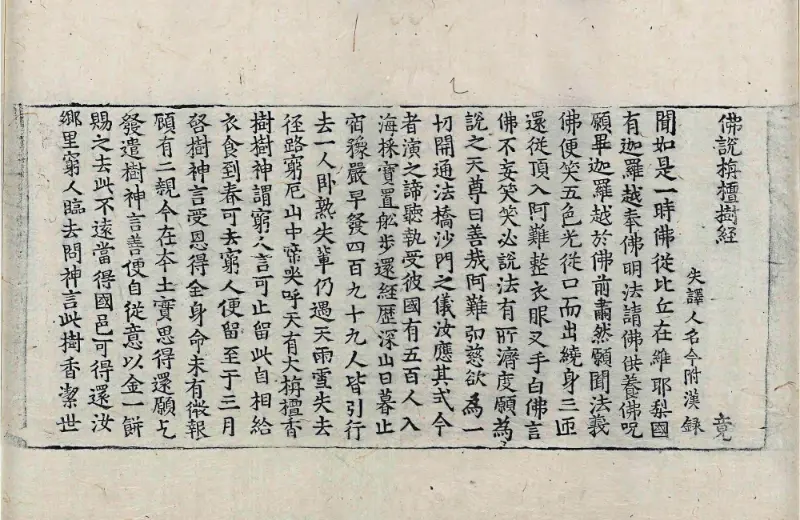 佛説栴檀樹経
失譯人名今附漢録 竟
聞如是一時佛從比丘在維耶梨國
有迦羅越奉佛明法請佛供養佛呪
願畢迦羅越於佛前肅然願聞法義
佛便笑五色光從口而出繞身三匝
還從頂入阿難整衣服叉手白佛言
佛不妄笑笑必説法有所濟度願為
説之天尊曰善哉阿難弘慈欲為一
切開通法橋沙門之儀汝應其式今
者演之諦聽執受彼國有五百人入
海採寳置舩步還經歷深山日暮止
宿豫嚴早發四百九十九人皆引行
去一人卧熟失輩仍遇天雨雪失去
徑路窮厄山中啼哭呼天有大栴檀香
樹樹神謂窮人言可止留此自相給
衣食到春可去窮人便留至于三月
啓樹神言受恩得全身命未有微報
顧有二親今在本土實思得還願乞
發遣樹神言善便自從意以金一餅
賜之去此不遠當得國邑可得還汝
鄉里窮人臨去問神言此樹香潔世